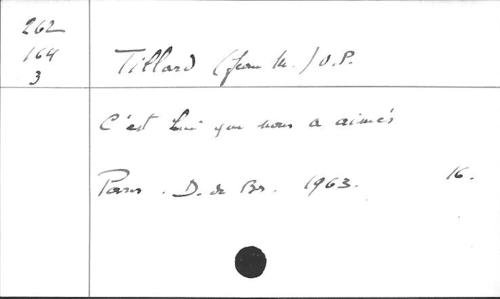 262
164
3
Tillard (Jean M.) O.P.
C'est Lui qui nous a aimés
Paris. D. de Br. 1963. 16.